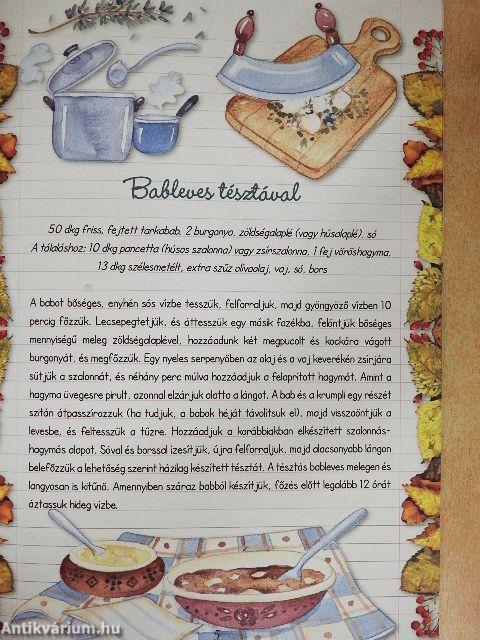 Bableves tésztával
50 dkg friss, fejtett tarkabab, 2 burgonya, zöldségalaplé (vagy húsalaplé), só
A tálaláshoz: 10 dkg pancetta (húsos szalonna) vagy zsírszalonna, 1 fej vöröshagyma,
13 dkg szélesmetélt, extra szűz olívaolaj, vaj, só, bors
A babot bőséges, enyhén sós vízbe tesszük, felforraljuk, majd gyöngyöző vízben 10
percig főzzük. Lecsepegtetjük, és áttesszük egy másik fazékba, felöntjük bőséges
mennyiségű meleg zöldségalaplével, hozzáadunk két megpucolt és kockára vágott
burgonyát, és megfőzzük. Egy nyeles serpenyőben az olaj és a vaj keverékén zsírjára
sütjük a szalonnát, és néhány perc múlva hozzáadjuk a felaprított hagymát. Amint a
hagyma üvegesre pirult, azonnal elzárjuk alatta a lángot. A bab és a krumpli egy részét
szitán átpasszírozzuk (ha tudjuk, a babok héját távolítsuk el), majd visszaöntjük a
levesbe, és feltesszük a tűzre. Hozzáadjuk a korábbiakban elkészített szalonnás-
hagymás alapot. Sóval és borssal ízesítjük, újra felforraljuk, majd alacsonyabb lángon
belefőzzük a lehetőség szerint házilag készített tésztát. A tésztás bableves melegen és
langyosan is kitűnő. Amennyiben száraz babból készítjük, főzés előtt legalább 12 órát
áztassuk hideg vízbe.
5
Antikvárium.hu